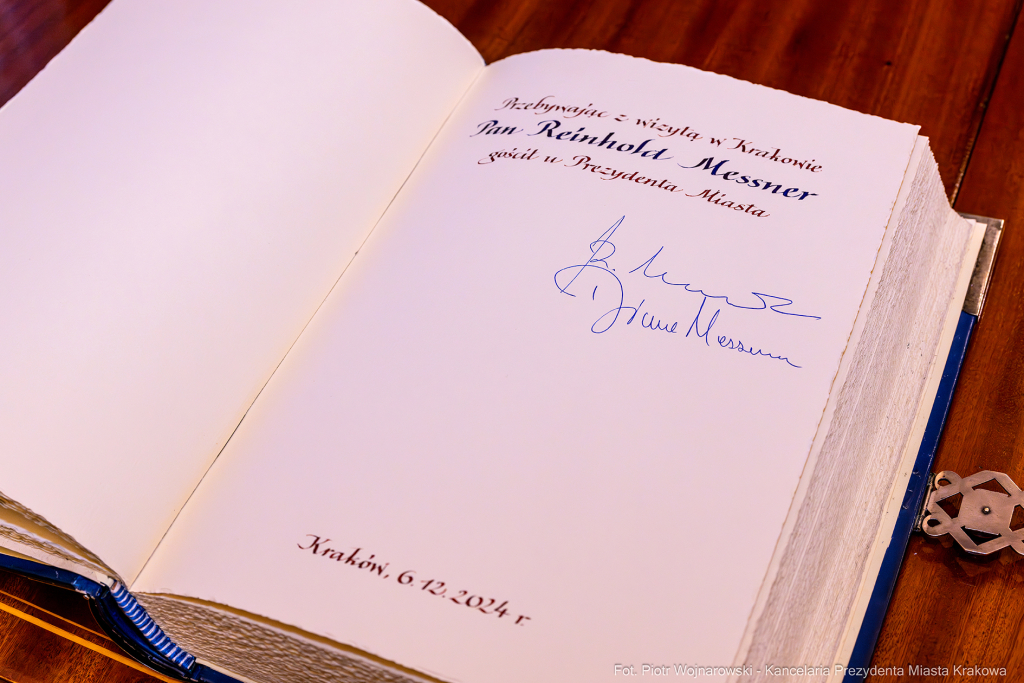 Przebywając z wizytą w Krakowie
Pan Reinhold Messner
gościł u Prezydenta Miasta
R. Messner
Diane Messner
Kraków, 6.12.2024 r.
Fot. Piotr Wojnarowski - Kancelaria Prezydenta Miasta Krakowa